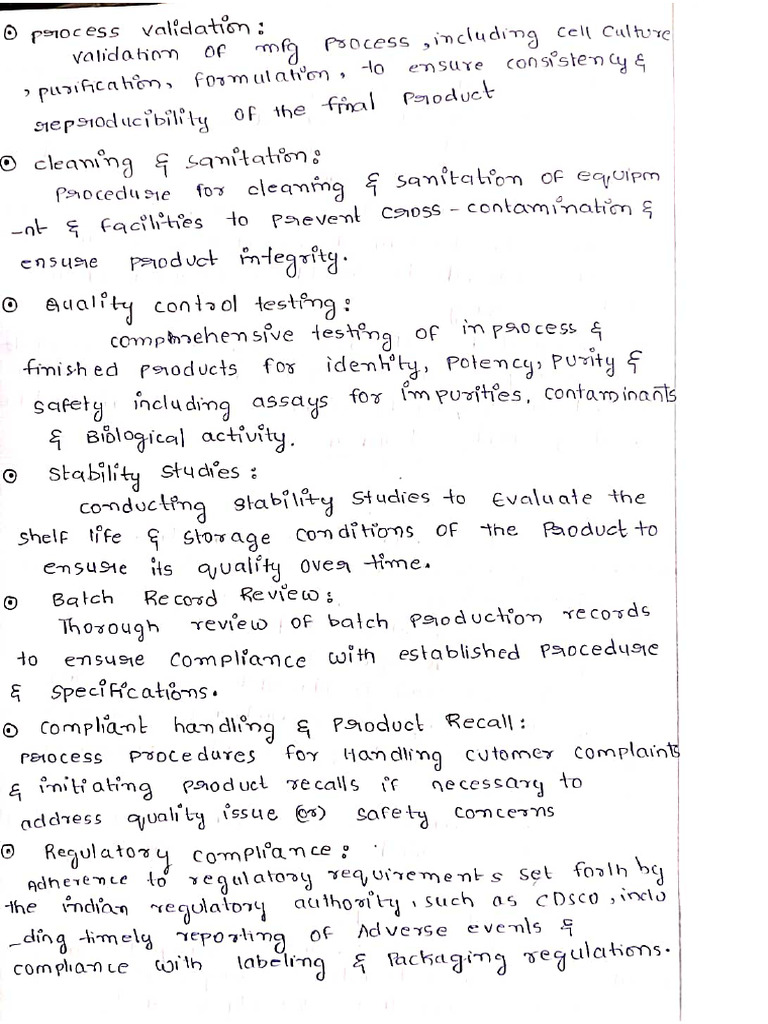 ⊙ process validation:
validation of mfg process, including cell culture
, purification, formulation, to ensure consistency &
reproducibility of the final product
⊙ cleaning & sanitation:
Procedure for cleaning & sanitation of equipm
-nt & facilities to prevent cross-contamination &
ensure product integrity.
⊙ Quality control testing:
comprehensive testing of inprocess &
finished products for identity, potency, purity &
safety including assays for impurities, contaminants
& Biological activity.
⊙ Stability Studies:
conducting stability studies to Evaluate the
shelf life & storage conditions of the Product to
ensure its quality over time.
⊙ Batch Record Review:
Thorough review of batch production records
to ensure compliance with established procedure
& specifications.
⊙ compliant handling & product Recall:
process procedures for Handling cutomer complaints
& initiating product recalls if necessary to
address quality issue (or) safety concerns
⊙ Regulatory compliance:
Adherence to regulatory requirements set forth by
the indian regulatory authority, such as CDSCO, inclu
-ding timely reporting of Adverse events &
compliance with labeling & Packaging regulations.